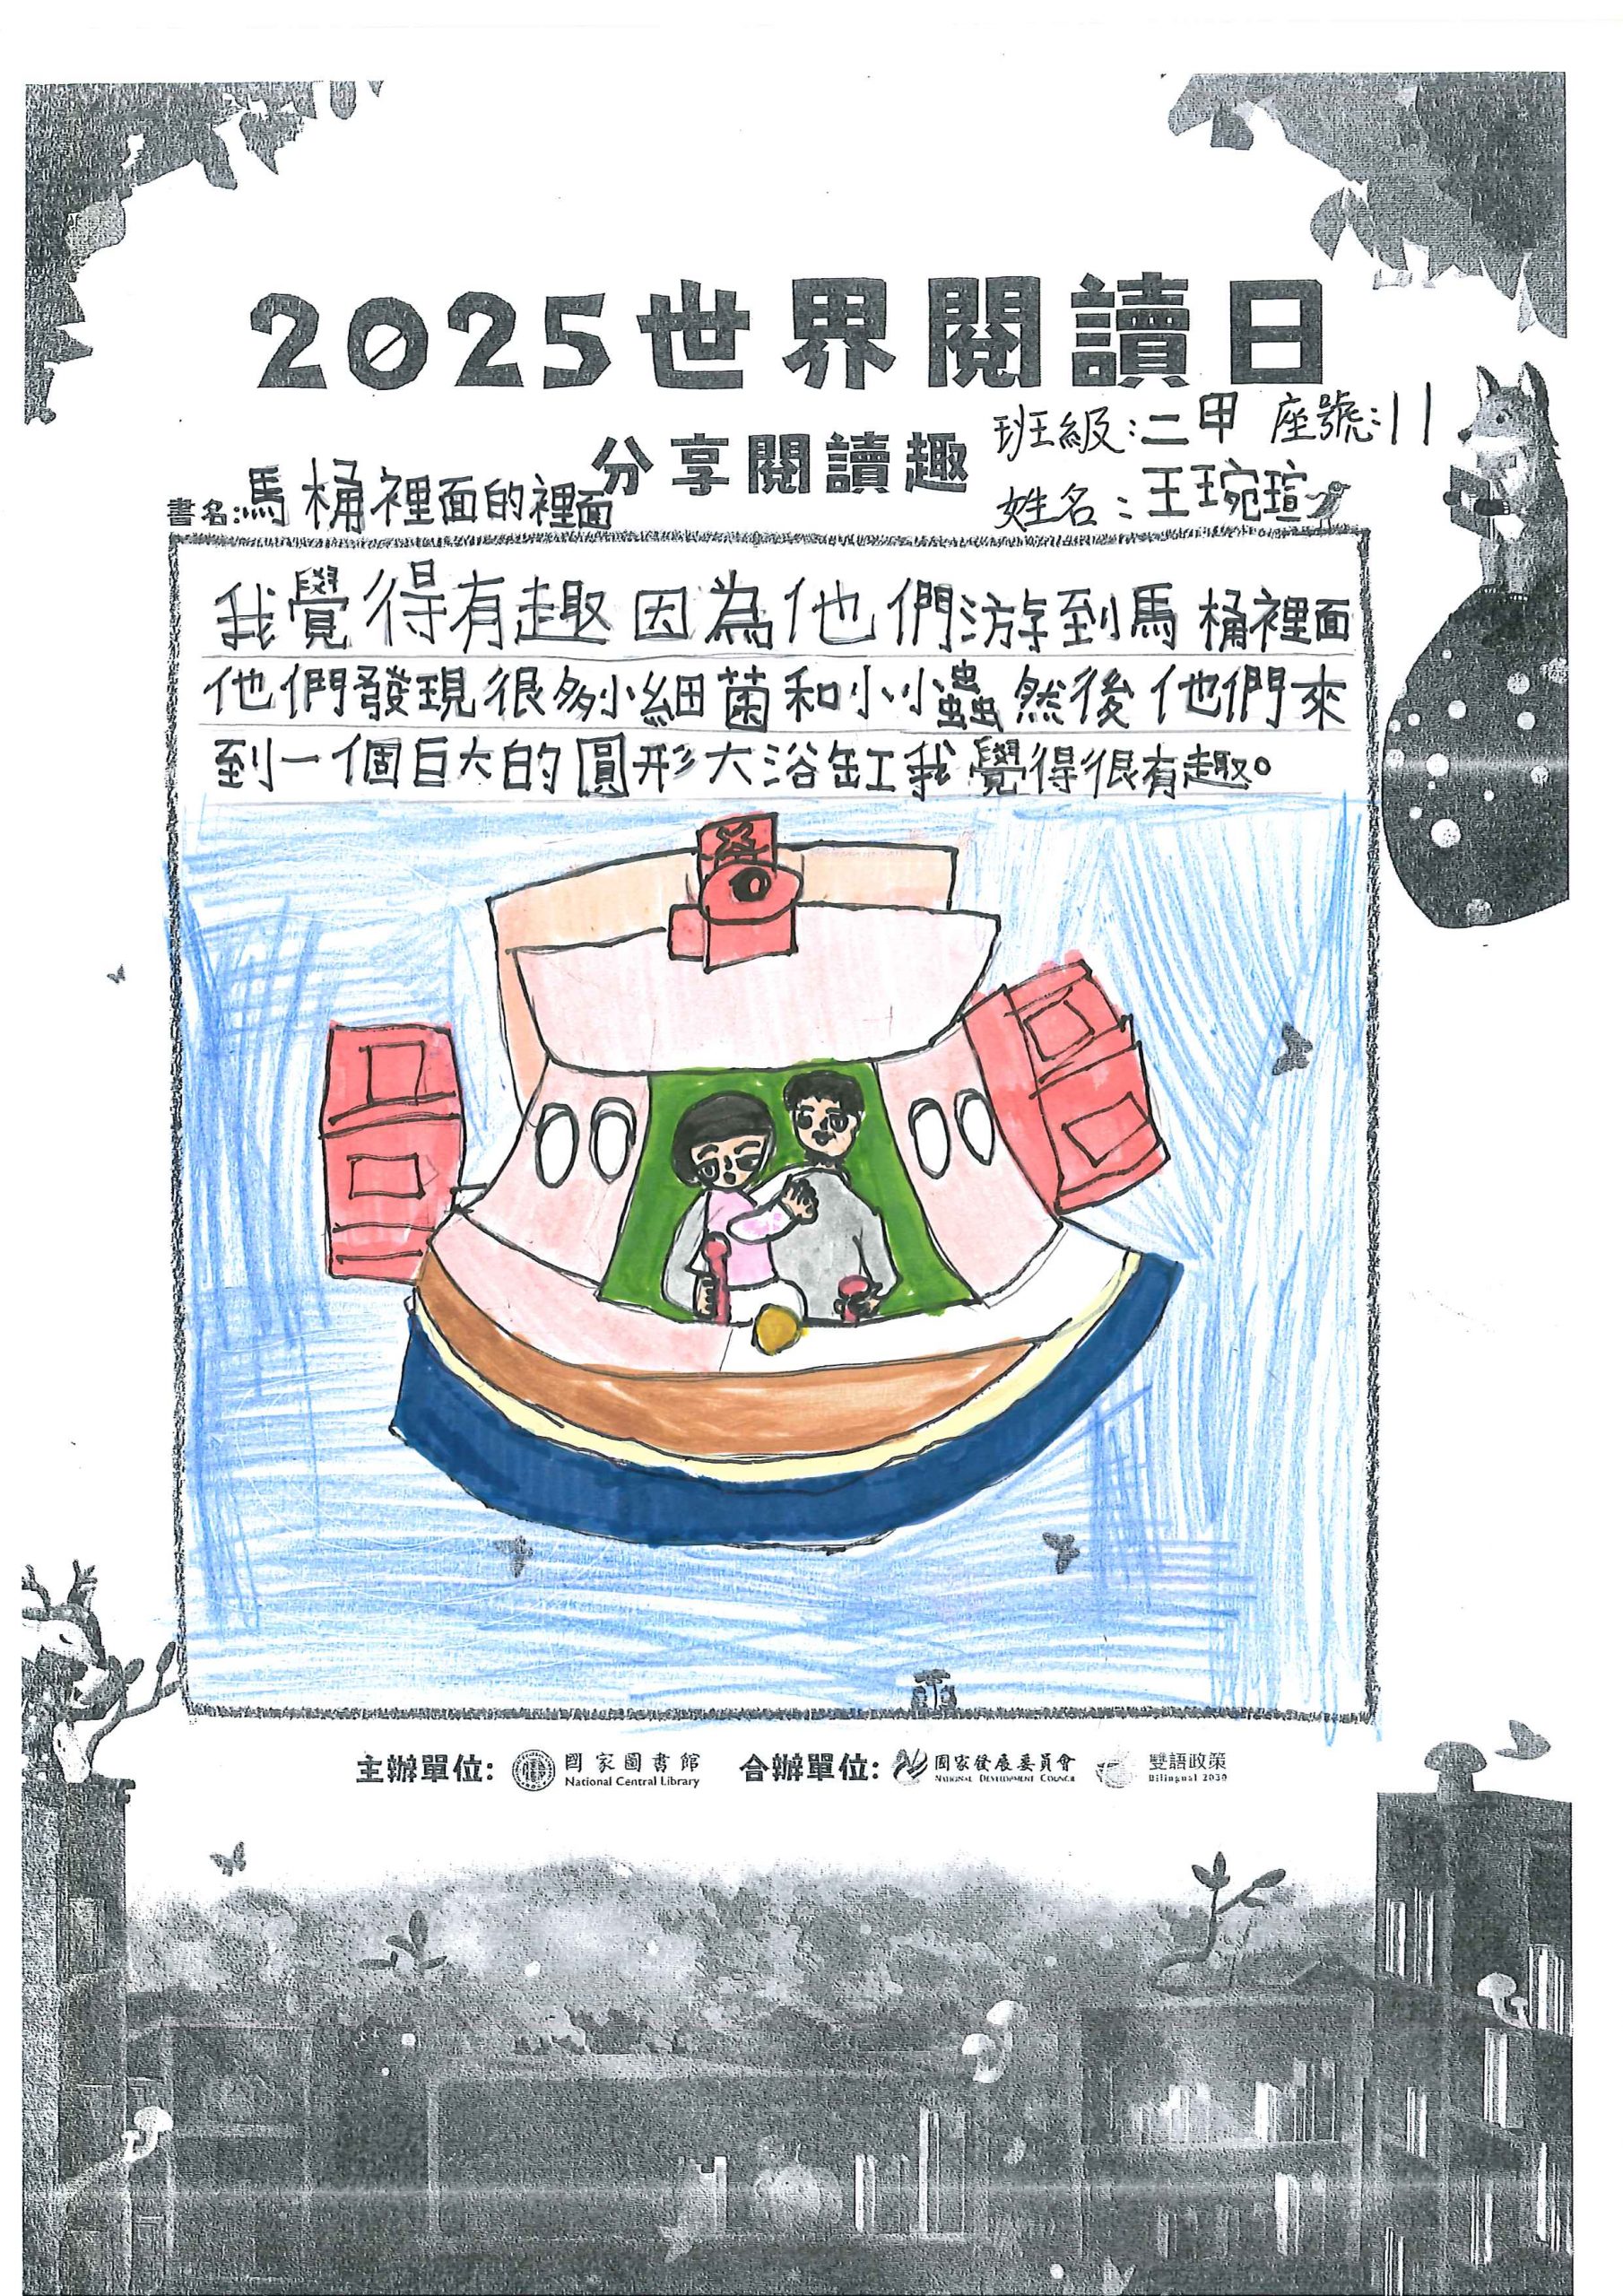 2025世界閱讀日
分享閱讀趣
班級：二甲 座號：11
姓名：王琬瑄
書名：馬桶裡面的裡面
我覺得有趣因為他們游到馬桶裡面
他們發現很多小細菌和小小蟲然後他們來
到一個巨大的圓形大浴缸我覺得很有趣。
主辦單位： 國家圖書館 National Central Library 合辦單位： 國家發展委員會 National Development Council 雙語政策 Bilingual 2030